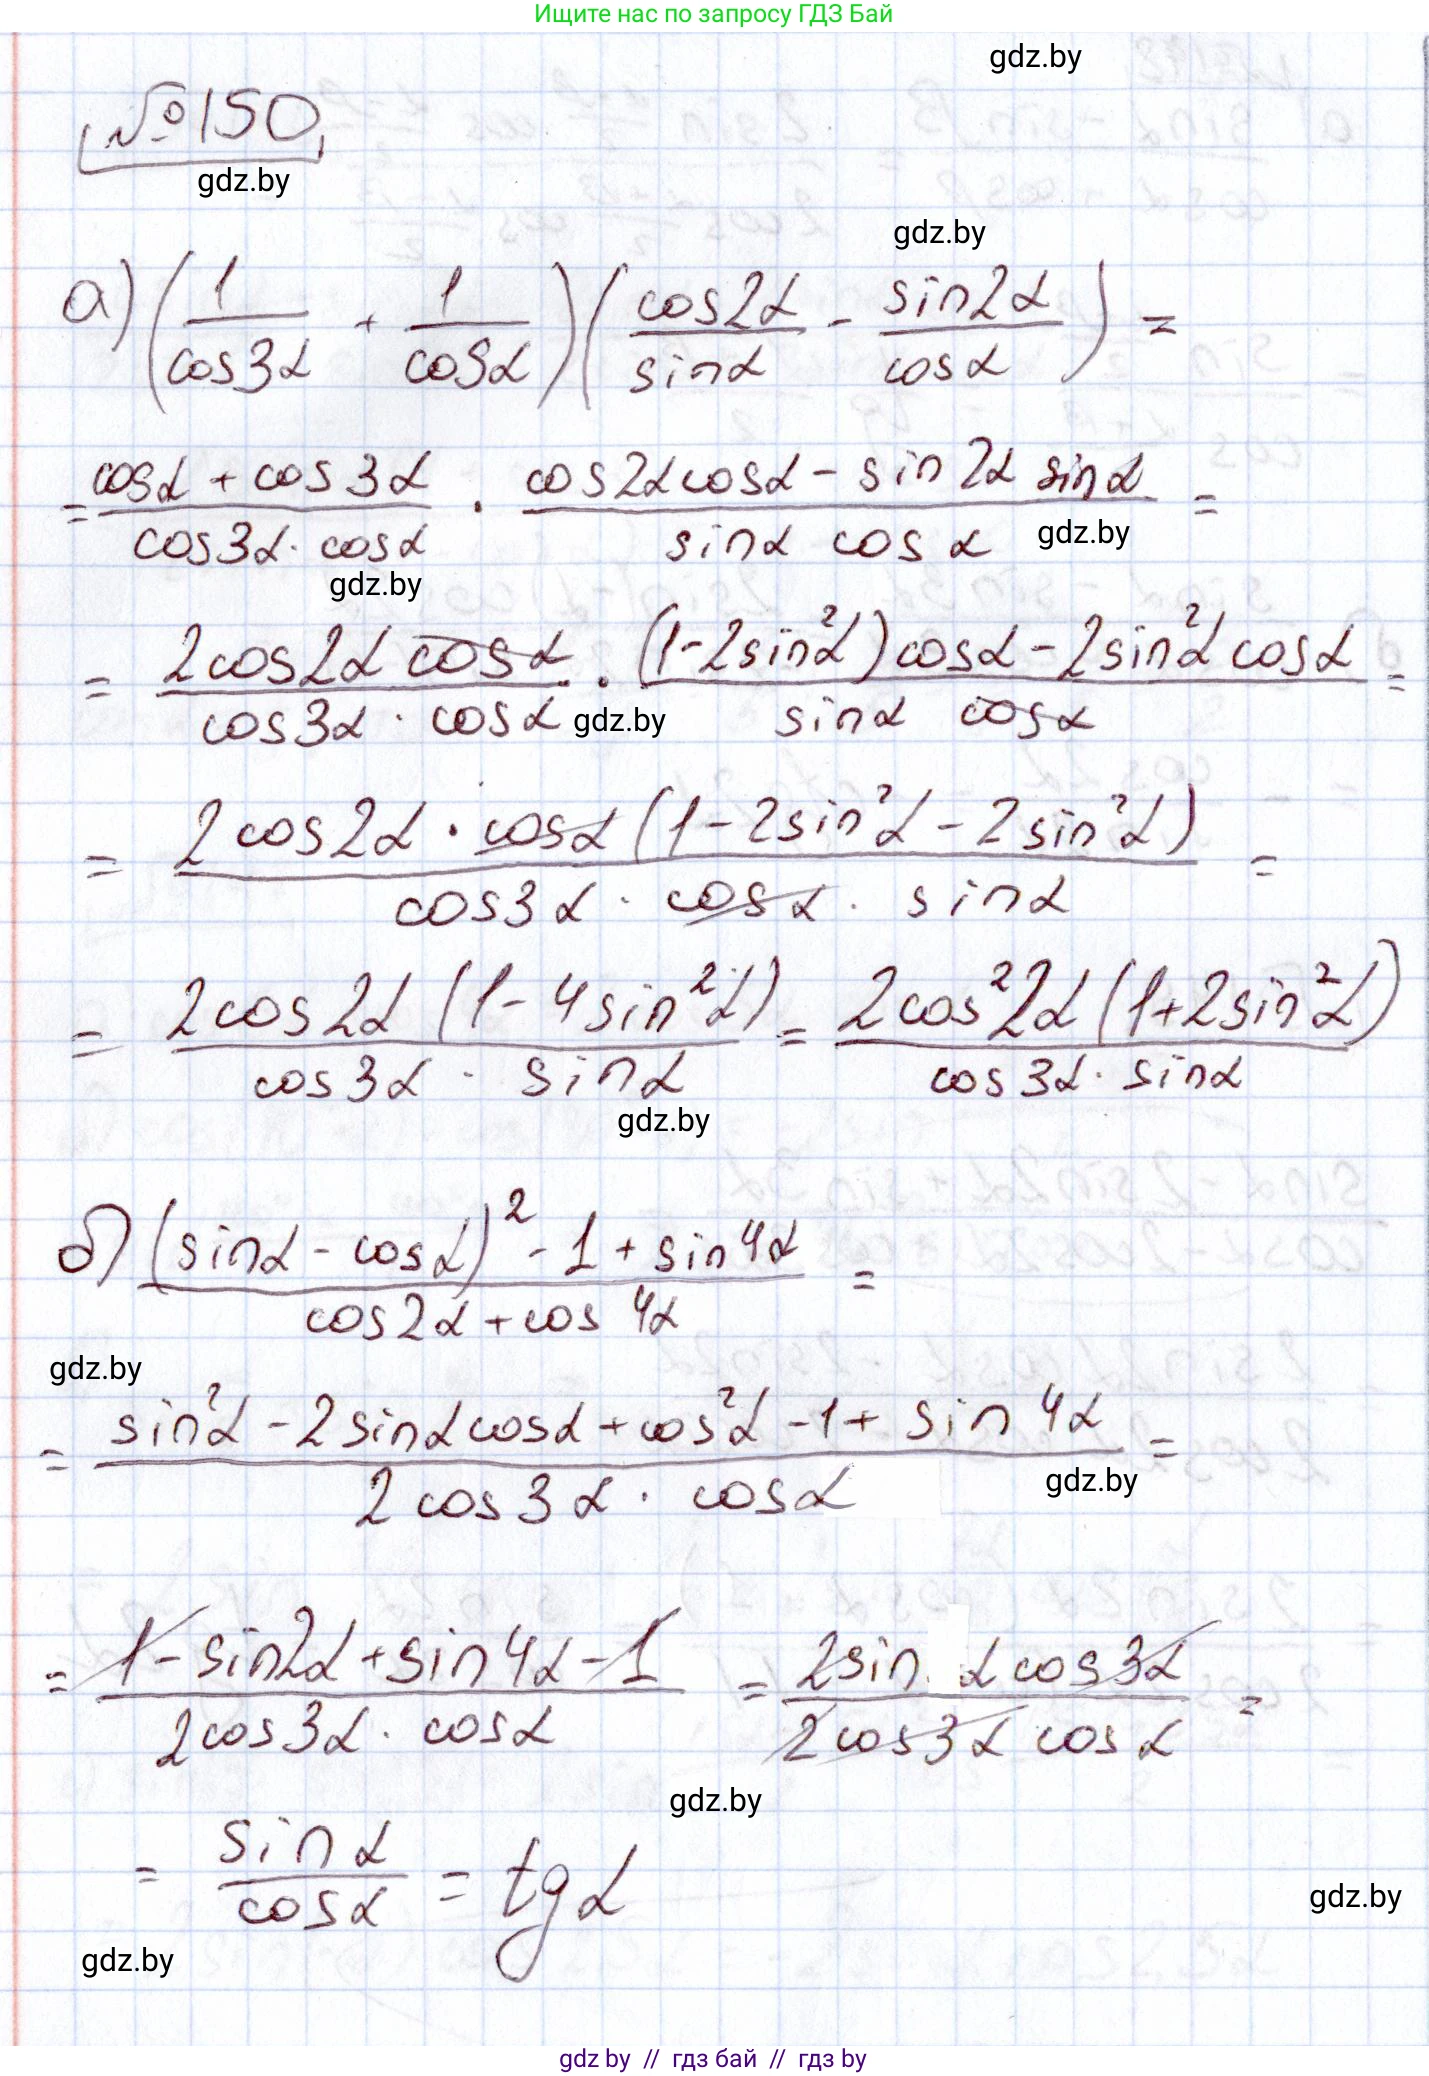 Ищите нас по запросу ГДЗ Бай
gdz.by
№150
gdz.by
gdz.by
а) (1/cos3α + 1/cosα)(cos2α/sinα - sin2α/cosα) =
= (cosα + cos3α)/(cos3α · cosα) · (cos2αcosα - sin2α sinα)/(sinα cosα) =
gdz.by
gdz.by
= (2cos2α cosα)/(cos3α · cosα) · ((1-2sin²α)cosα - 2sin²α cosα)/(sinα cosα) =
gdz.by
= (2cos2α · cosα(1-2sin²α - 2sin²α))/(cos3α · cosα · sinα) =
= (2cos2α(1-4sin²α))/(cos3α · sinα) = (2cos²2α(1+2sin²α))/(cos3α · sinα)
gdz.by
б) ((sinα - cosα)² - 1 + sin4α)/(cos2α + cos4α) =
gdz.by
= (sin²α - 2sinαcosα + cos²α - 1 + sin4α)/(2cos3α · cosα) =
gdz.by
= (1 - sin2α + sin4α - 1)/(2cos3α · cosα) = (2sin α cos3α)/(2cos3α cosα) =
gdz.by
= sinα/cosα = tgα
gdz.by
gdz.by
gdz by // гдз бай // gdz by